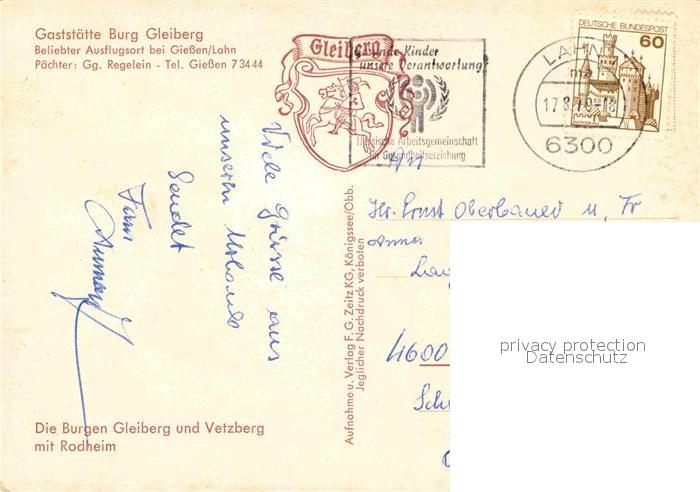 Gaststätte Burg Gleiberg
Beliebter Ausflugsort bei Gießen/Lahn
Pächter: Gg. Regelein - Tel. Gießen 73444
Gleiberg
Kinder
unsere Verantwortung!
Hessische Arbeitsgemeinschaft
für Gesundheitserziehung
LAHN
17.8.79-18
6300
DEUTSCHE BUNDESPOST
60
Viele Grüsse aus
unserem Urlaub
Sendet
Fam
Hr. Ernst Oberbauer u. Fr
Anna
4600
Aufnahme u. Verlag F. G. Zeitz KG, Königssee/Obb.
Jeglicher Nachdruck verboten
privacy protection
Datenschutz
Die Burgen Gleiberg und Vetzberg
mit Rodheim